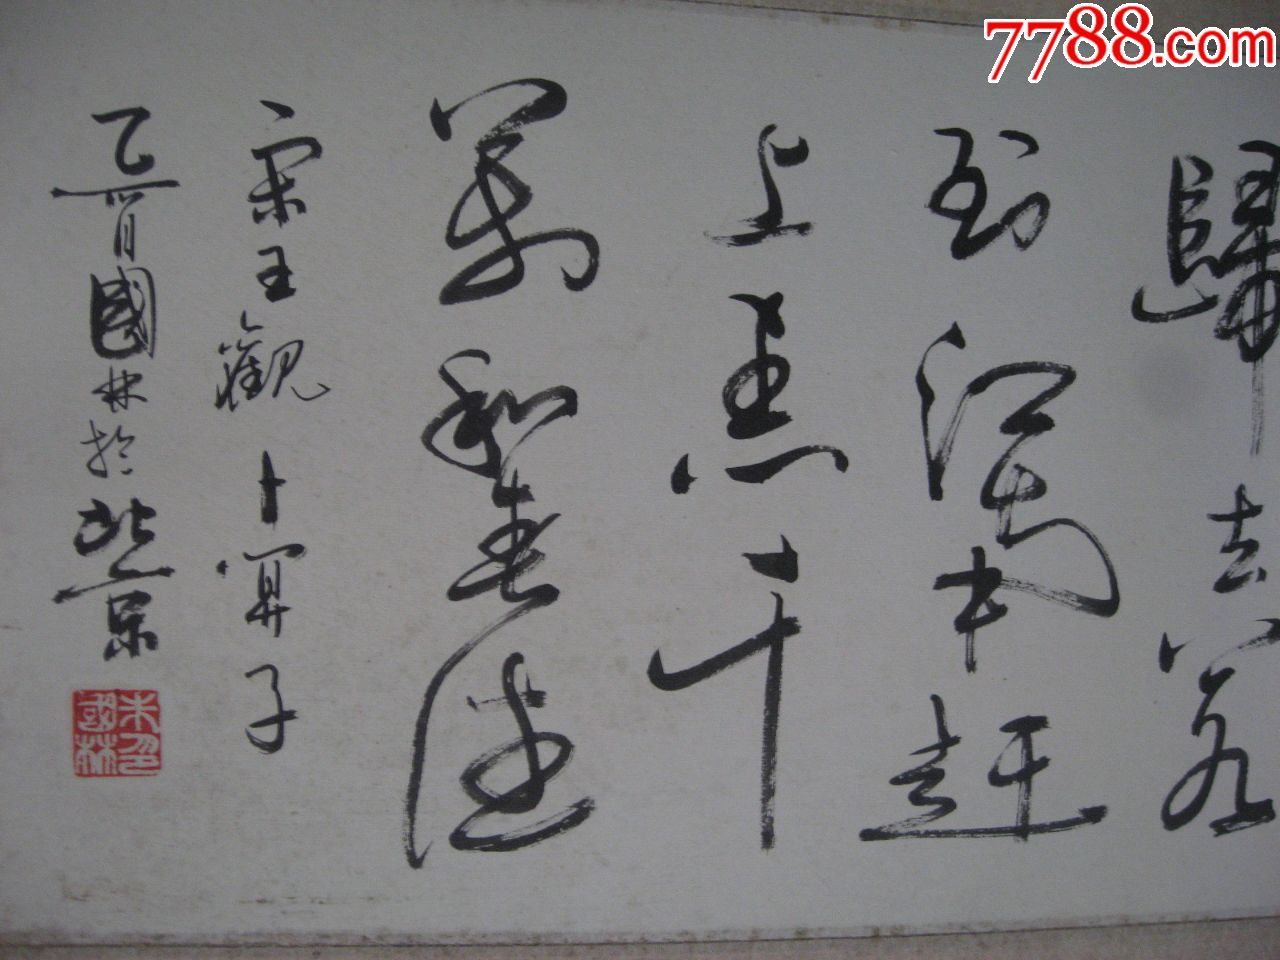 7788.com
歸去若
到江南赶
上春千
萬和春住
宋王觀卜算子
乙酉國林於北京
朱國林印